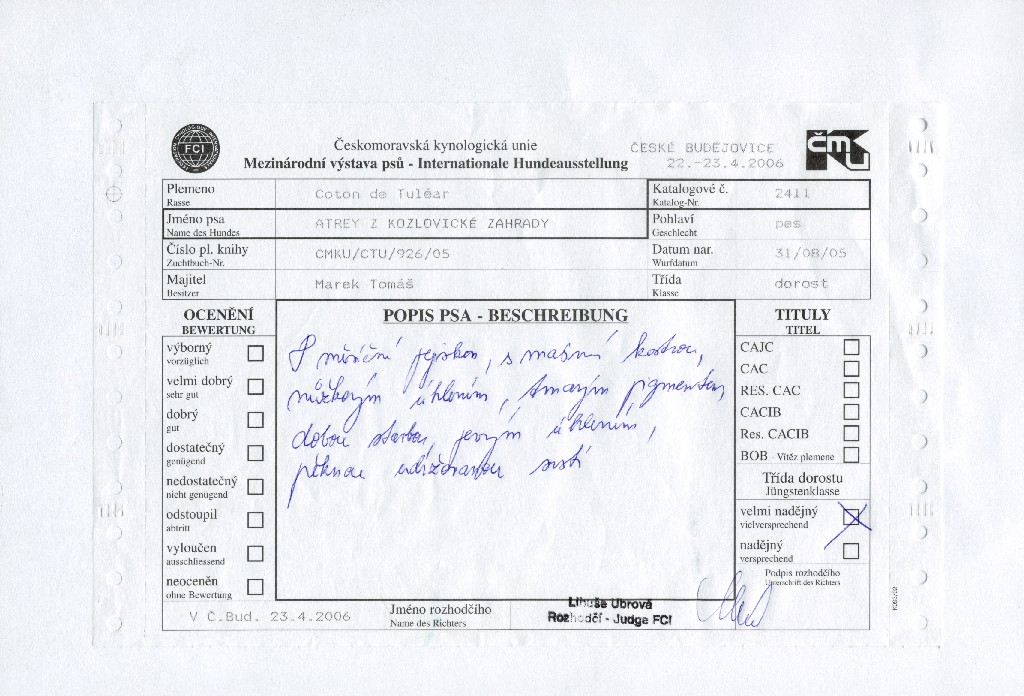 FCI
Českomoravská kynologická unie
Mezinárodní výstava psů - Internationale Hundeausstellung
ČESKÉ BUDĚJOVICE
22.-23.4.2006
ČMKU
Plemeno
Rasse
Coton de Tuléar
Katalogové č.
Katalog-Nr.
2411
Jméno psa
Name des Hundes
ATREY Z KOZLOVICKÉ ZAHRADY
Pohlaví
Geschlecht
pes
Číslo pl. knihy
Zuchtbuch-Nr.
CMKU/CTU/926/05
Datum nar.
Wurfdatum
31/08/05
Majitel
Besitzer
Marek Tomáš
Třída
Klasse
dorost
OCENĚNÍ
BEWERTUNG
výborný
vorzüglich
velmi dobrý
sehr gut
dobrý
gut
dostatečný
genügend
nedostatečný
nicht genügend
odstoupil
abtritt
vyloučen
ausschliessend
neoceněn
ohne Bewertung
POPIS PSA - BESCHREIBUNG
měsíční s kostrou,
úhlením, tmavým pigmentem,
dobou stavbou, úhlením,
pěknou srstí
TITULY
TITEL
CAJC
CAC
RES. CAC
CACIB
Res. CACIB
BOB - Vítěz plemene
Třída dorostu
Jüngstenklasse
velmi nadějný
vielversprechend
nadějný
versprechend
Podpis rozhodčího
Unterschrift des Richters
V Č.Bud. 23.4.2006
Jméno rozhodčího
Name des Richters
Libuše Ubrová
Rozhodčí - Judge FCI